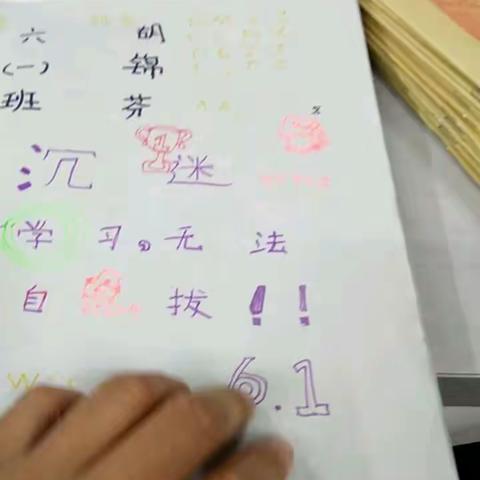 六 胡
（一） 锦
班 芬
沉 迷
学 习，无 法
自 拔！！
6.1